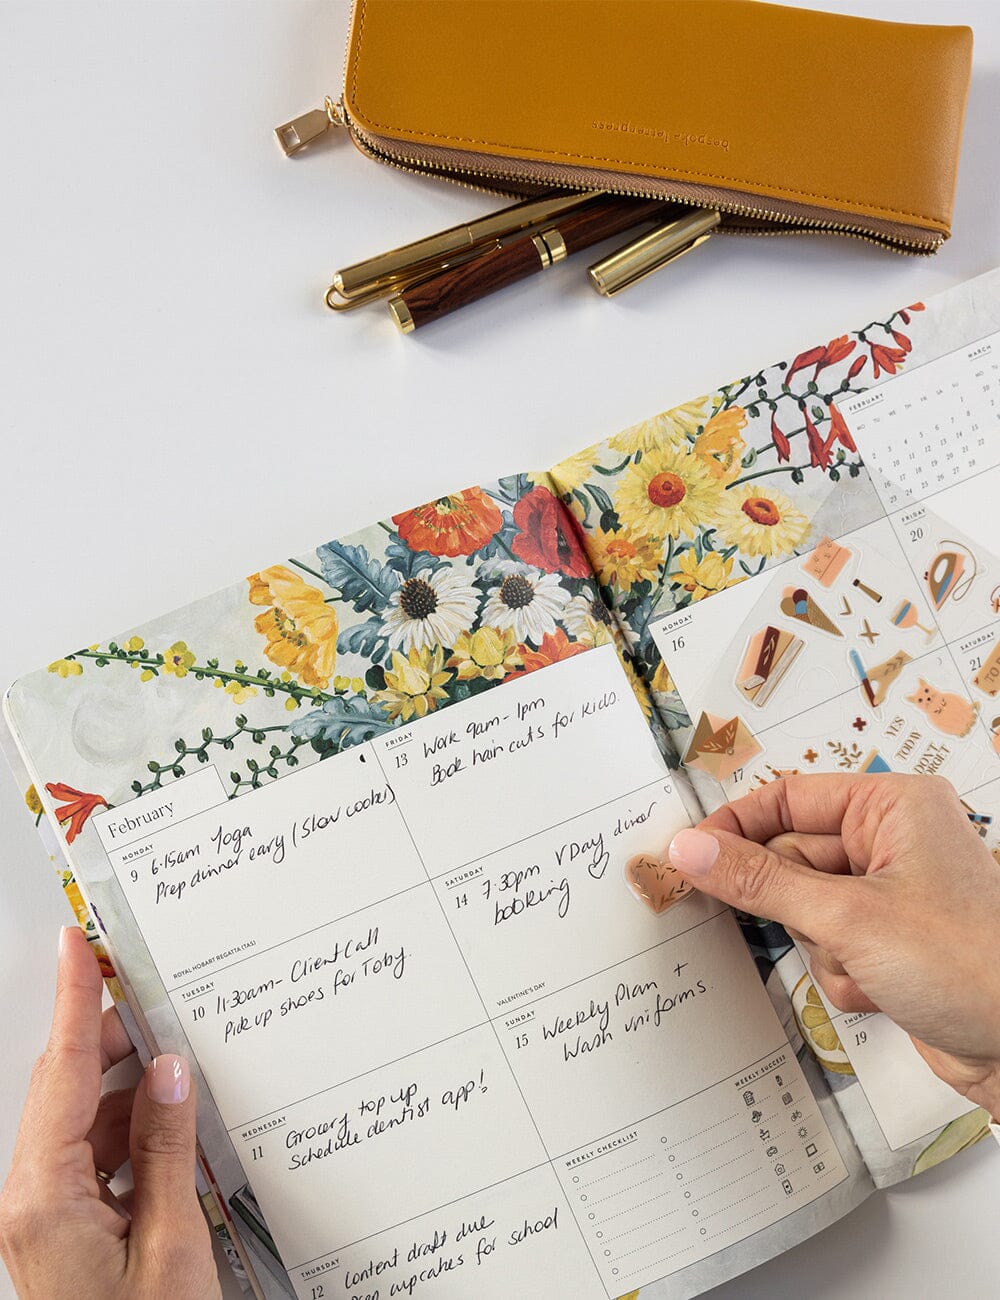 bespoke letterpress
February
MONDAY
9
6.15am Yoga
Prep dinner eary (Slow cooker)
ROYAL HOBART REGATTA (TAS)
TUESDAY
10
11.30am - Client Call
Pick up shoes for Toby.
WEDNESDAY
11
Grocery top up
Schedule dentist app!
THURSDAY
12
Content draft due
cupcakes for school
FRIDAY
13
Work 9am - 1pm
Book hair cuts for kids.
SATURDAY
14
7.30pm V Day dinner
booking
VALENTINE'S DAY
SUNDAY
15
Weekly Plan +
Wash uniforms.
WEEKLY CHECKLIST
WEEKLY SUCCESS
FEBRUARY
MO TU WE TH FR SA SU
1
2 3 4 5 6 7 8
9 10 11 12 13 14 15
16 17 18 19 20 21 22
23 24 25 26 27 28
MARCH
MO TU
MONDAY
16
17
19
FRIDAY
20
SATURDAY
21
YES
TODAY
DON'T
FORGET
TO